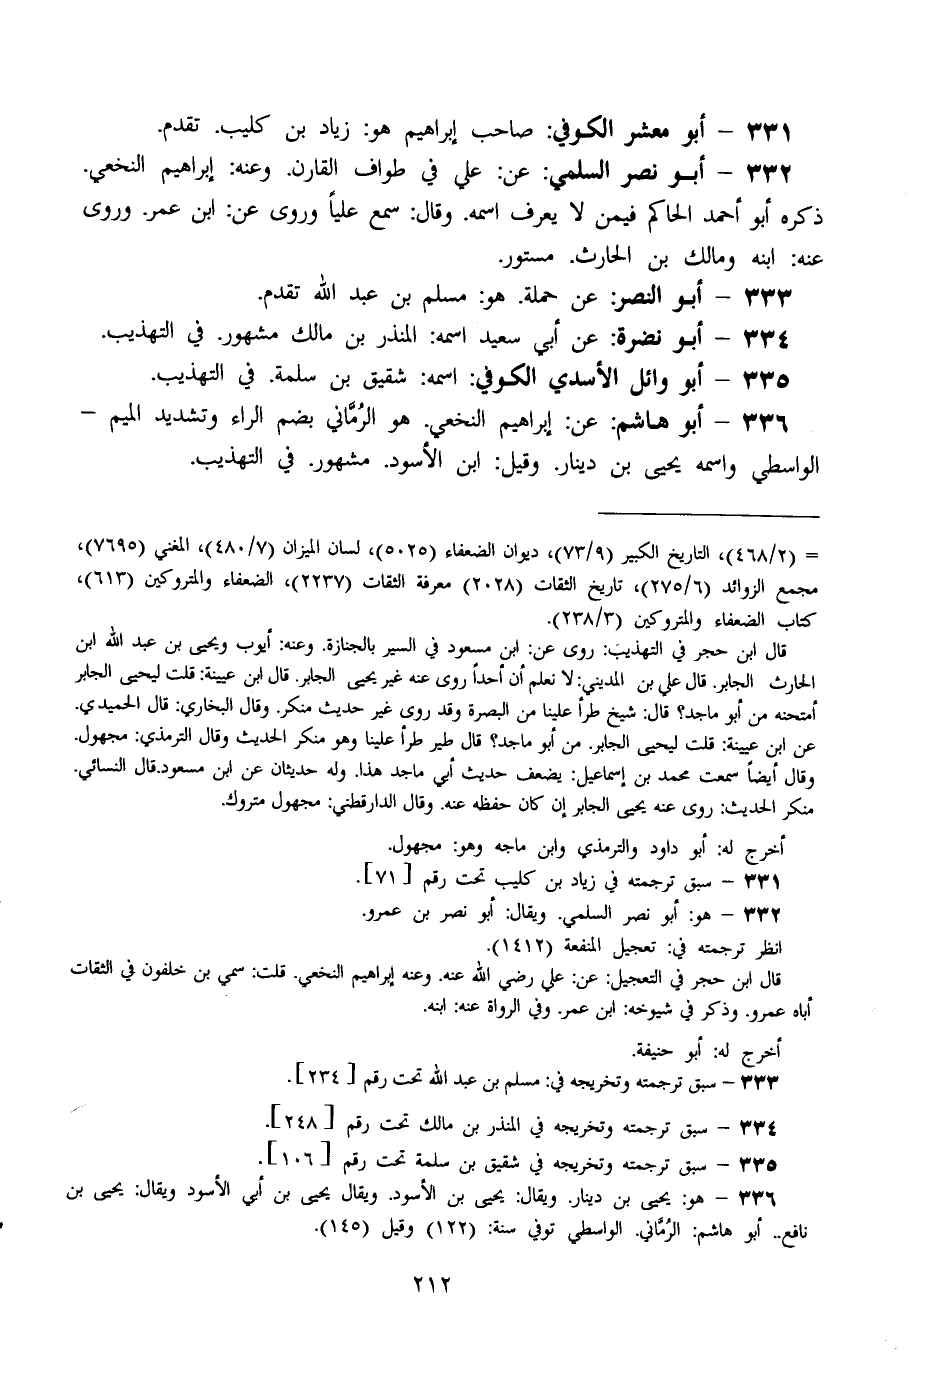 ٣٣١ – أبو معشر الكوفي: صاحب إبراهيم هو: زياد بن كليب. تقدم.
٣٣٢ – أبو نصر السلمي: عن: علي في طواف القارن. وعنه: إبراهيم النخعي.
ذكره أبو أحمد الحاكم فيمن لا يعرف اسمه. وقال: سمع علياً وروى عن: ابن عمر. وروى
عنه: ابنه ومالك بن الحارث. مستور.
٣٣٣ – أبو النصر: عن حملة. هو: مسلم بن عبد الله تقدم.
٣٣٤ – أبو نضرة: عن أبي سعيد اسمه: المنذر بن مالك مشهور. في التهذيب.
٣٣٥ – أبو وائل الأسدي الكوفي: اسمه: شقيق بن سلمة. في التهذيب.
٣٣٦ – أبو هاشم: عن: إبراهيم النخعي. هو الرُمَّاني بضم الراء وتشديد الميم –
الواسطي واسمه يحيى بن دينار. وقيل: ابن الأسود. مشهور. في التهذيب.
= (٤٦٨/٢)، التاريخ الكبير (٧٣/٩)، ديوان الضعفاء (٥٠٢٥)، لسان الميزان (٤٨٠/٧)، المغني (٧٦٩٥)،
مجمع الزوائد (٢٧٥/٦)، تاريخ الثقات (٢٠٢٨) معرفة الثقات (٢٢٣٧)، الضعفاء والمتروكين (٦١٣)،
كتاب الضعفاء والمتروكين (٢٣٨/٣).
قال ابن حجر في التهذيب: روى عن: ابن مسعود في السير بالجنازة. وعنه: أيوب ويحيى بن عبد الله ابن
الحارث الجابر. قال علي بن المديني: لا نعلم أن أحداً روى عنه غير يحيى الجابر. قال ابن عيينة: قلت ليحيى الجابر
أمتحنه من أبو ماجد؟ قال: شيخ طرأ علينا من البصرة وقد روى غير حديث منكر. وقال البخاري: قال الحميدي.
عن ابن عيينة: قلت ليحيى الجابر. من أبو ماجد؟ قال طير طرأ علينا وهو منكر الحديث وقال الترمذي: مجهول.
وقال أيضاً سمعت محمد بن إسماعيل: يضعف حديث أبي ماجد هذا. وله حديثان عن ابن مسعود.قال النسائي.
منكر الحديث: روى عنه يحيى الجابر إن كان حفظه عنه. وقال الدارقطني: مجهول متروك.
أخرج له: أبو داود والترمذي وابن ماجه وهو: مجهول.
٣٣١ – سبق ترجمته في زياد بن كليب تحت رقم [٧١].
٣٣٢ – هو: أبو نصر السلمي. ويقال: أبو نصر بن عمرو.
انظر ترجمته في: تعجيل المنفعة (١٤١٢).
قال ابن حجر في التعجيل: عن: علي رضي الله عنه. وعنه إبراهيم النخعي. قلت: سمي بن خلفون في الثقات
أباه عمرو. وذكر في شيوخه: ابن عمر. وفي الرواة عنه: ابنه.
أخرج له: أبو حنيفة.
٣٣٣ – سبق ترجمته وتخريجه في: مسلم بن عبد الله تحت رقم [٢٣٤].
٣٣٤ – سبق ترجمته وتخريجه في المنذر بن مالك تحت رقم [٢٤٨].
٣٣٥ – سبق ترجمته وتخريجه في شقيق بن سلمة تحت رقم [١٠٦].
٣٣٦ – هو: يحيى بن دينار. ويقال: يحيى بن الأسود. ويقال يحيى بن أبي الأسود ويقال: يحيى بن
نافع.. أبو هاشم: الرُمَّاني. الواسطي توفي سنة: (١٢٢) وقيل (١٤٥).
٢١٢